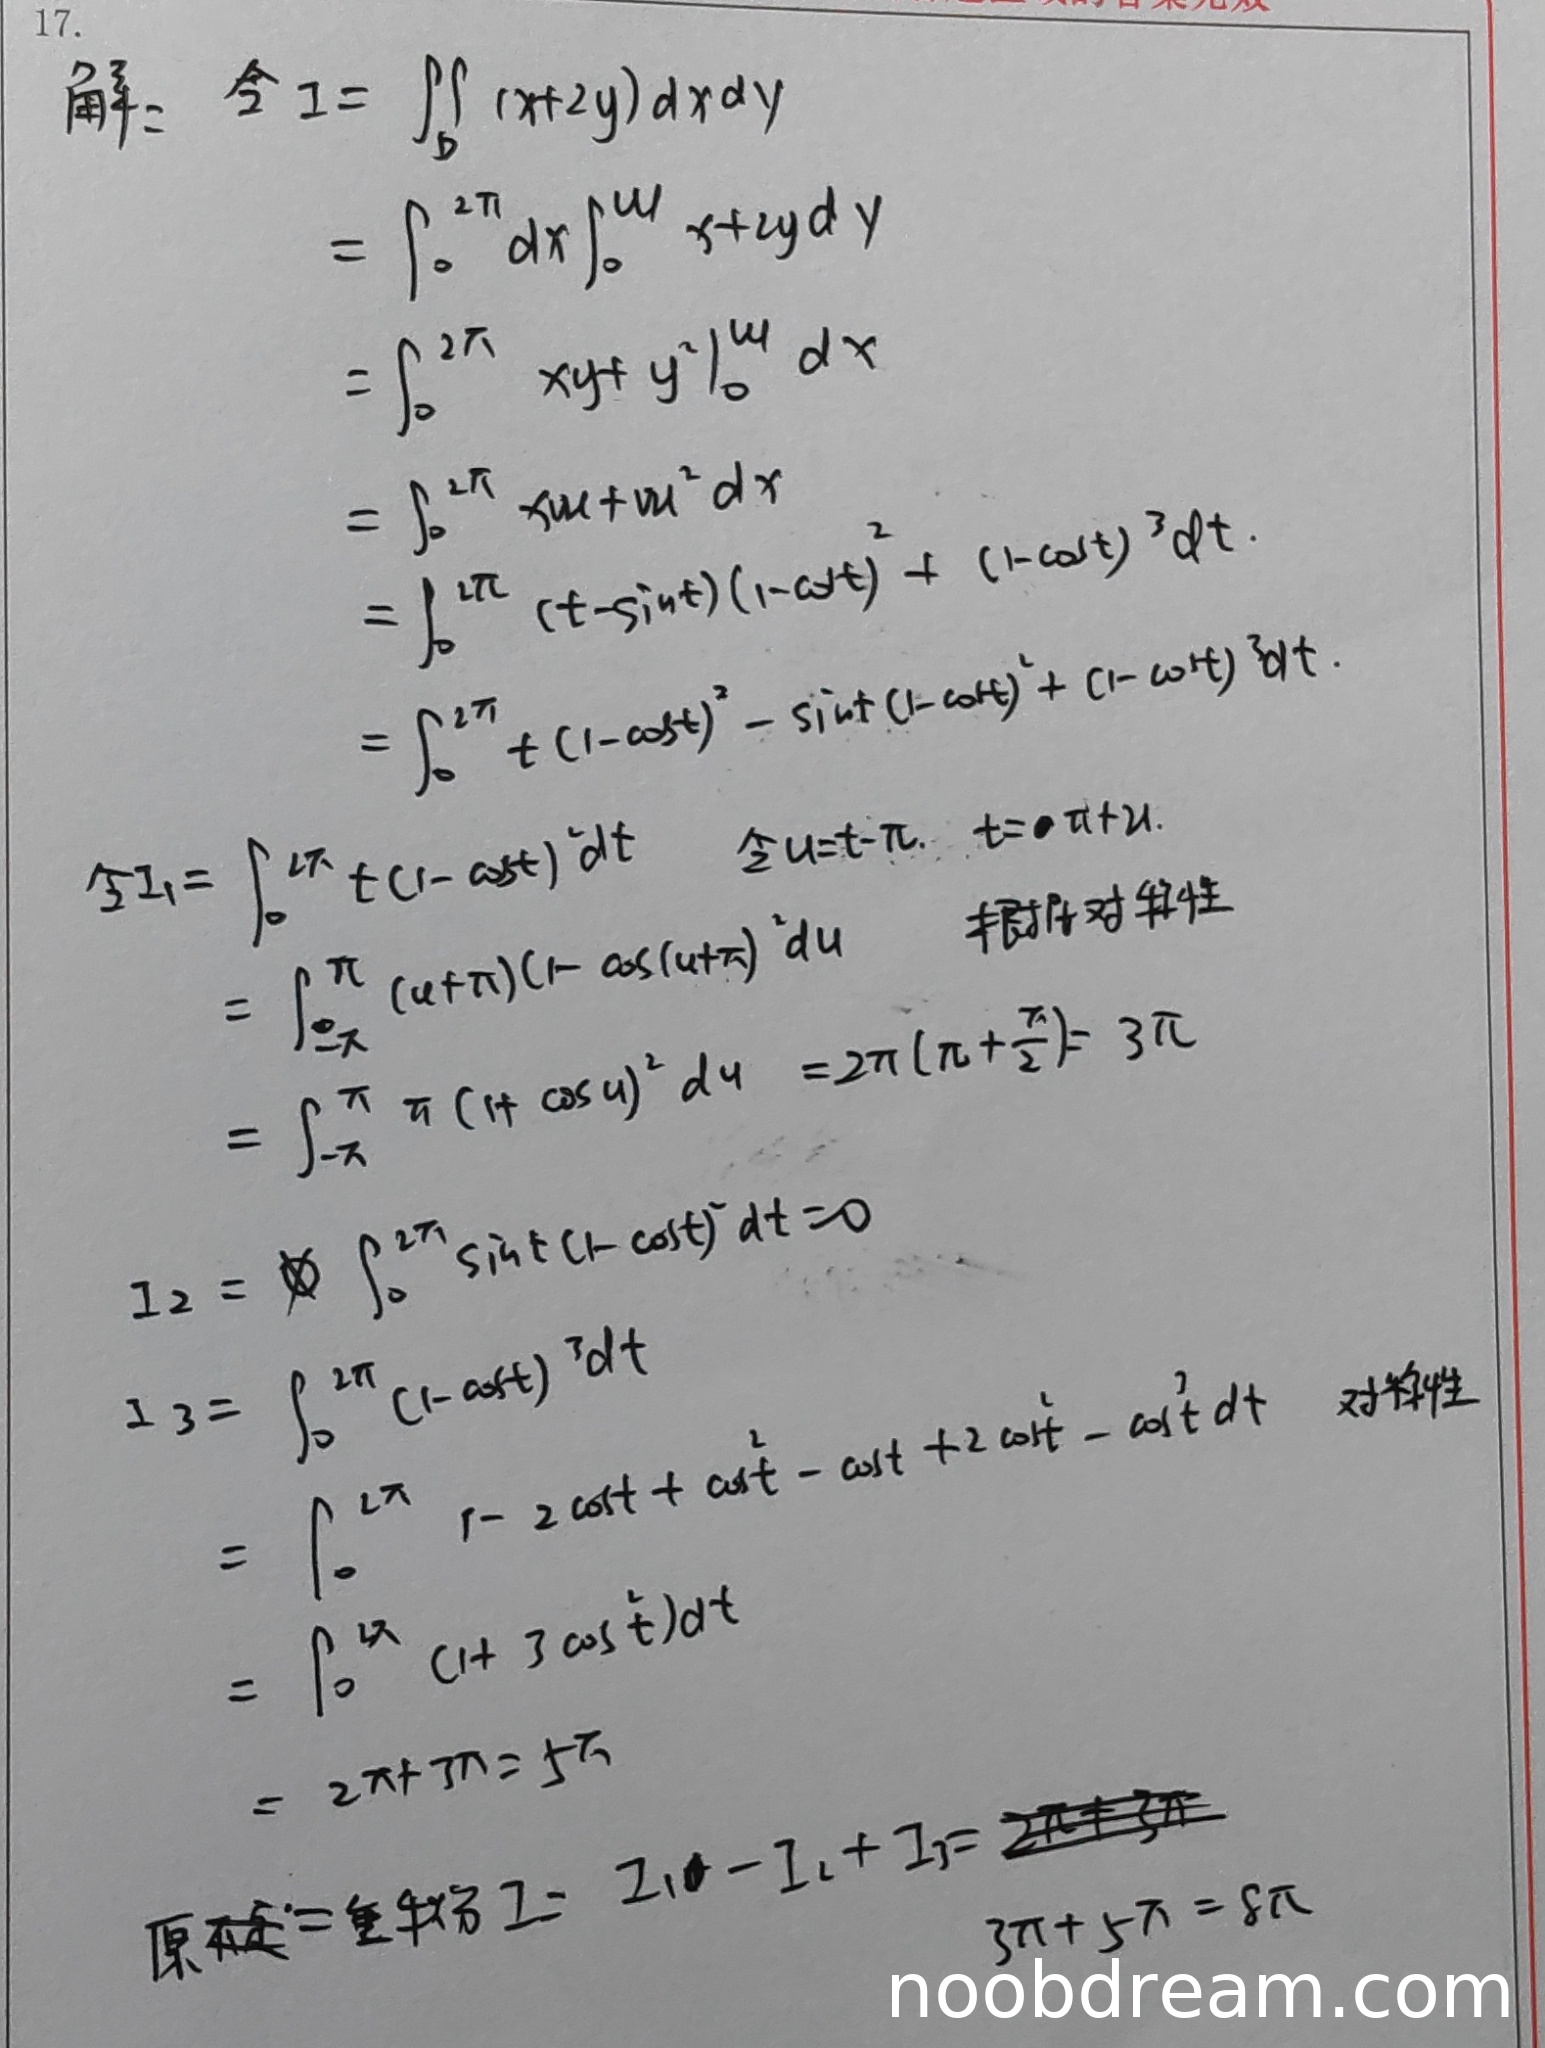 17.
解: 令 I = ∬_D (x+2y)dxdy
= ∫_0^{2π} dx ∫_0^{y(x)} x+2y dy
= ∫_0^{2π} xy+y²|_0^{y(x)} dx
= ∫_0^{2π} xy(x)+y(x)² dx
= ∫_0^{2π} (t-sint)(1-cost)² + (1-cost)³dt.
= ∫_0^{2π} t(1-cost)² - sint(1-cost)² + (1-cost)³dt.
令I₁ = ∫_0^{2π} t(1-cost)²dt 令u=t-π. t=π+u.
= ∫_{-π}^{π} (u+π)(1-cos(u+π)²du 根据对称性
= ∫_{-π}^{π} π(1+cosu)²du = 2π(π+π/2)= 3π
I₂ = ∫_0^{2π} sint(1-cost)²dt=0
I₃ = ∫_0^{2π} (1-cost)³dt
= ∫_0^{2π} 1-2cost+cos²t-cost+2cos²t-cos³t dt 对称性
= ∫_0^{2π} (1+3cos²t)dt
= 2π+3π=5π
原 = 重积分 I = I₁ - I₂ + I₃ = 2π+3π
3π+5π=8π
noobdream.com